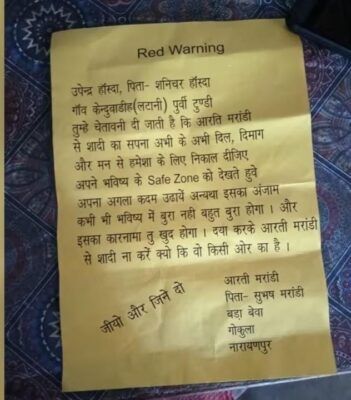 Red Warning
उपेन्द्र हाँस्दा, पिता- शनिचर हाँस्दा
गाँव केन्दुवाडीह(लटानी) पुर्वी टुण्डी
तुम्हे चेतावनी दी जाती है कि आरति मरांडी
से शादी का सपना अभी के अभी दिल, दिमाग
और मन से हमेशा के लिए निकाल दीजिए
अपने भविष्य के Safe Zone को देखते हुवे
अपना अगला कदम उढायें अन्यथा इसका अंजाम
कभी भी भविष्य में बुरा नही बहुत बुरा होगा । और
इसका कारनामा तु खुद होगा । दया करके आरती मरांडी
से शादी ना करें क्यो कि वो किसी ओर का है ।
आरती मरांडी
पिता- सुभष मरांडी
बडा बेवा
गोकुला
नारायणपुर
जीयो और जिने दो